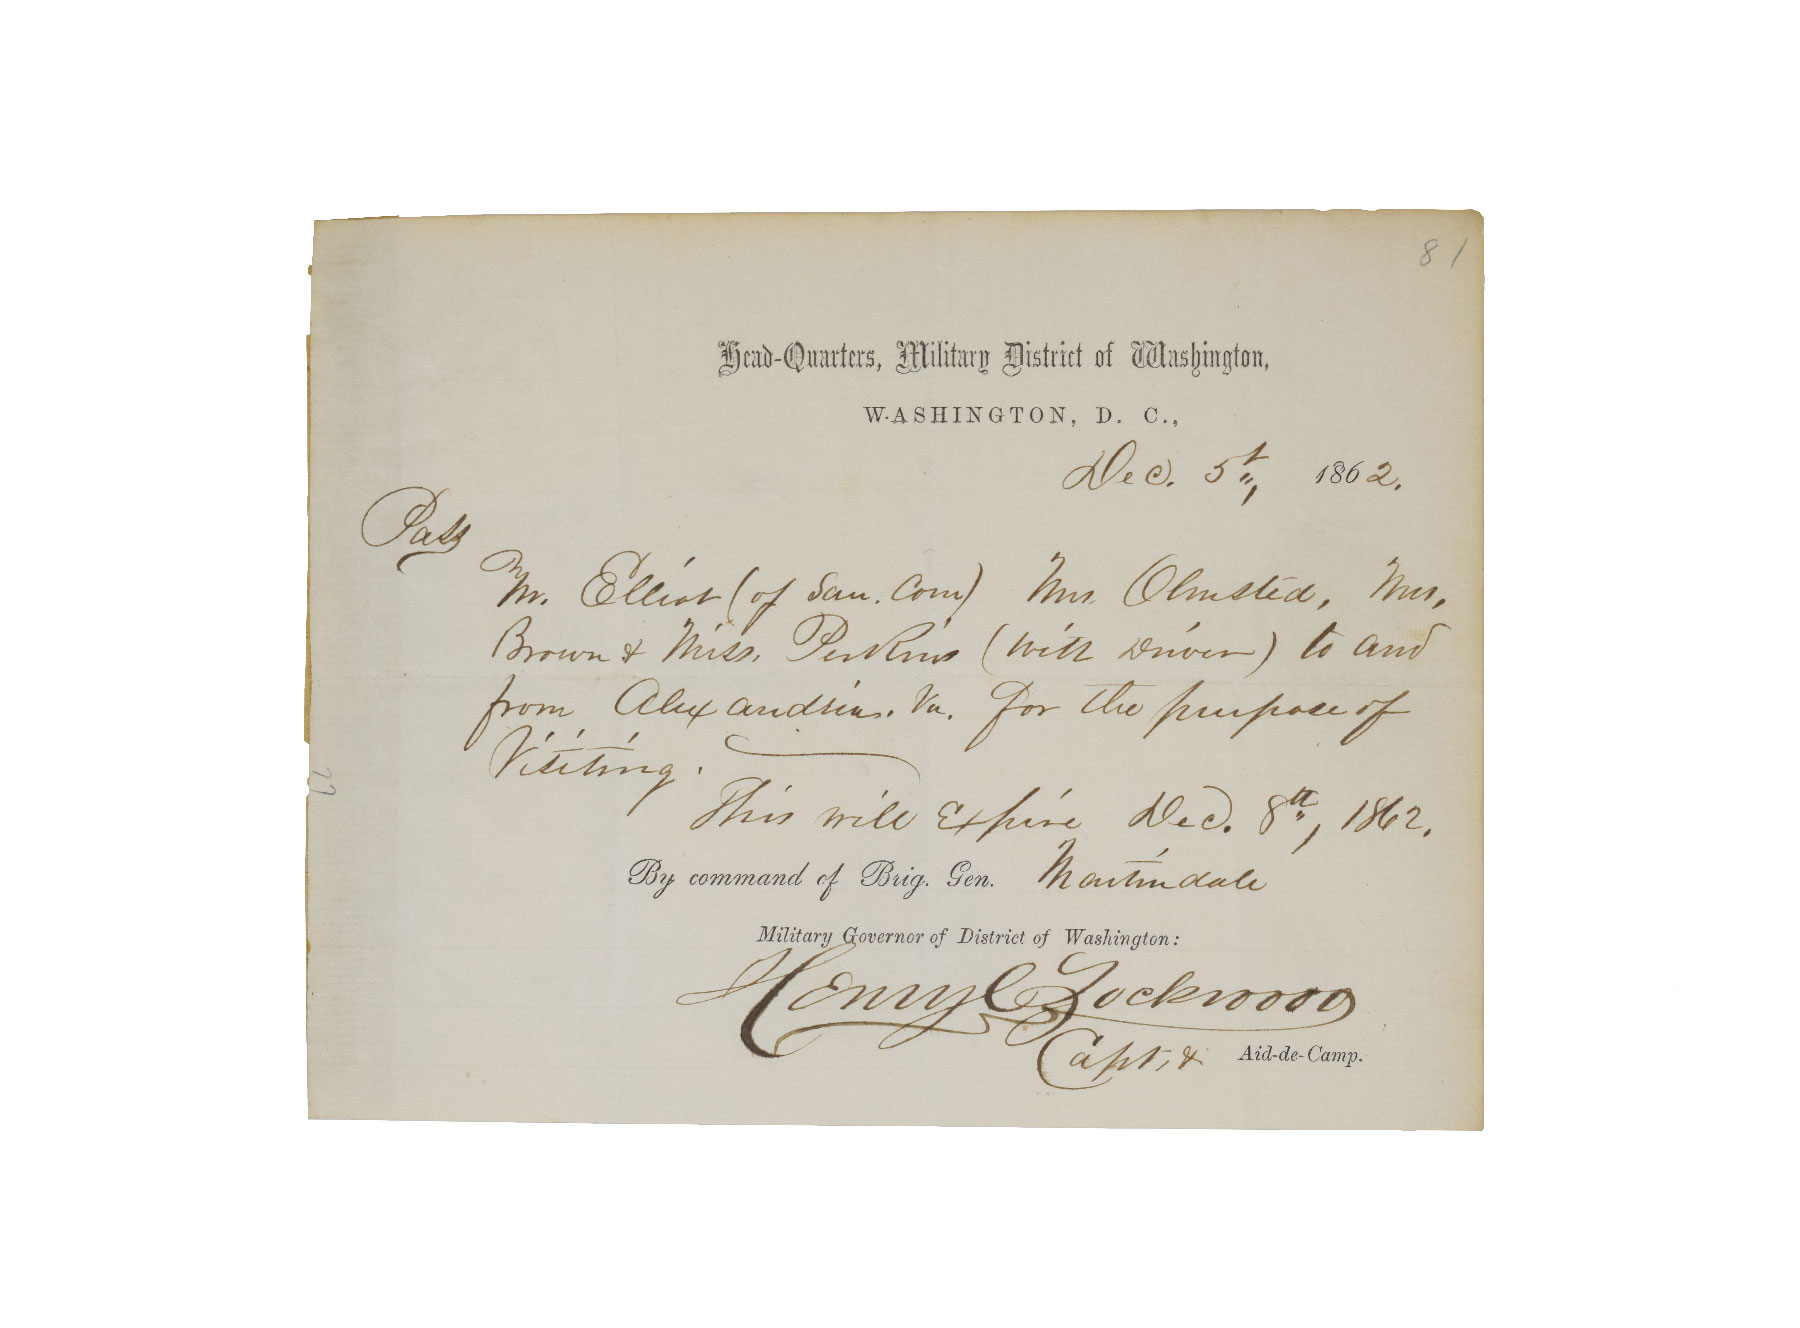 81
Head-Quarters, Military District of Washington,
WASHINGTON, D. C.,
Dec. 5th, 1862.
Pass
Mr. Elliot (of San. Com) Mrs. Olmsted, Mrs.
Brown & Miss. Perkins (with Driver) to and
from Alexandria. Va. for the purpose of
Visiting.
This will Expire Dec. 8th, 1862.
By command of Brig. Gen. Martindale
Military Governor of District of Washington:
Henry C Lockwood
Capt, & Aid-de-Camp.
77